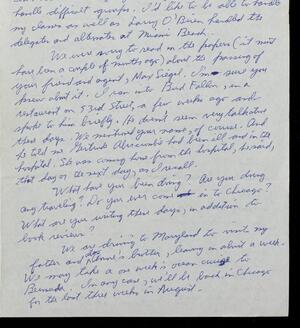 handle difficult groups. I'd like to be able to handle
my classes as well as Larry O'Brien handled the
delegates and alternates at Miami Beach.
We were sorry to read in the papers (it must
have been a couple of months ago) about the passing of
your friend and agent, Max Siegel. I'm sure you
knew about it. I ran into Bud Fallon, in a
restaurant on 53rd Street, a few weeks ago and
spoke to him briefly. He doesn't seem very talkative
these days. We mentioned your name, of course. And
he told me Gertrude Abercrombie had been ill and in the
hospital. She was coming home from the hospital, he said,
that day or the next day, as I recall.
What have you been doing? Are you doing
any traveling? Do you ever come in to Chicago?
What are you writing these days, in addition to
book reviews?
We are driving to Maryland to visit my
father and brother, leaving in about a week.
We may take a one week's ocean cruise to
Bermuda. In any case, we'll be back in Chicago
for the last three weeks in August.